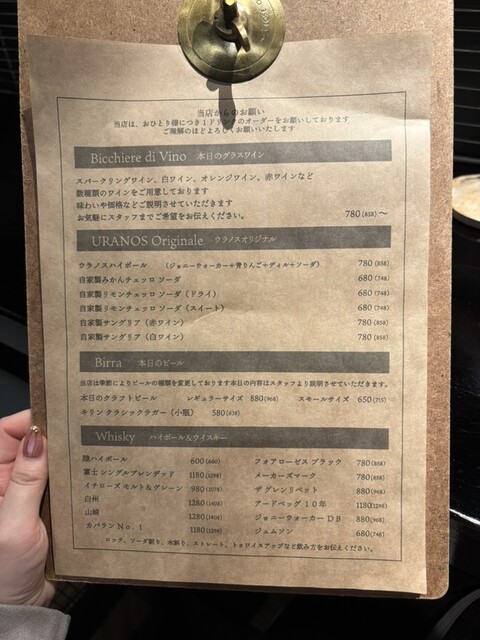 当店からのお願い
当店は、おひとり様につき1ドリンクのオーダーをお願いしております
ご理解のほどよろしくお願いいたします
Bicchiere di Vino 本日のグラスワイン
スパークリングワイン、白ワイン、オレンジワイン、赤ワインなど
数種類のワインをご用意しております
味わいや価格などご説明させていただきます
お気軽にスタッフまでご希望をお伝えください。 780(858)〜
URANOS Originale ウラノスオリジナル
ウラノスハイボール （ジョニーウォーカー+青りんご+ディル+ソーダ） 780(858)
自家製みかんチェッロ ソーダ 680(748)
自家製リモンチェッロ ソーダ（ドライ） 680(748)
自家製リモンチェッロ ソーダ（スイート） 680(748)
自家製サングリア（赤ワイン） 780(858)
自家製サングリア（白ワイン） 780(858)
Birra 本日のビール
当店は季節によりビールの種類を変更しております本日の内容はスタッフより説明させていただきます。
本日のクラフトビール レギュラーサイズ 880(968) スモールサイズ 650(715)
キリン クラシックラガー（小瓶） 580(638)
Whisky ハイボール&ウイスキー
陸ハイボール 600(660)
富士 シングルブレンデッド 1180(1298)
イチローズ モルト&グレーン 980(1078)
白州 1280(1408)
山崎 1280(1408)
カバラン No. 1 1180(1298)
フォアローゼス ブラック 780(858)
メーカーズマーク 780(858)
ザ グレンリベット 880(968)
アードベッグ 10年 1180(1298)
ジョニーウォーカー DB 880(968)
ジェムソン 680(748)
ロック、ソーダ割り、水割り、ストレート、トゥワイスアップなど飲み方をお伝えください。